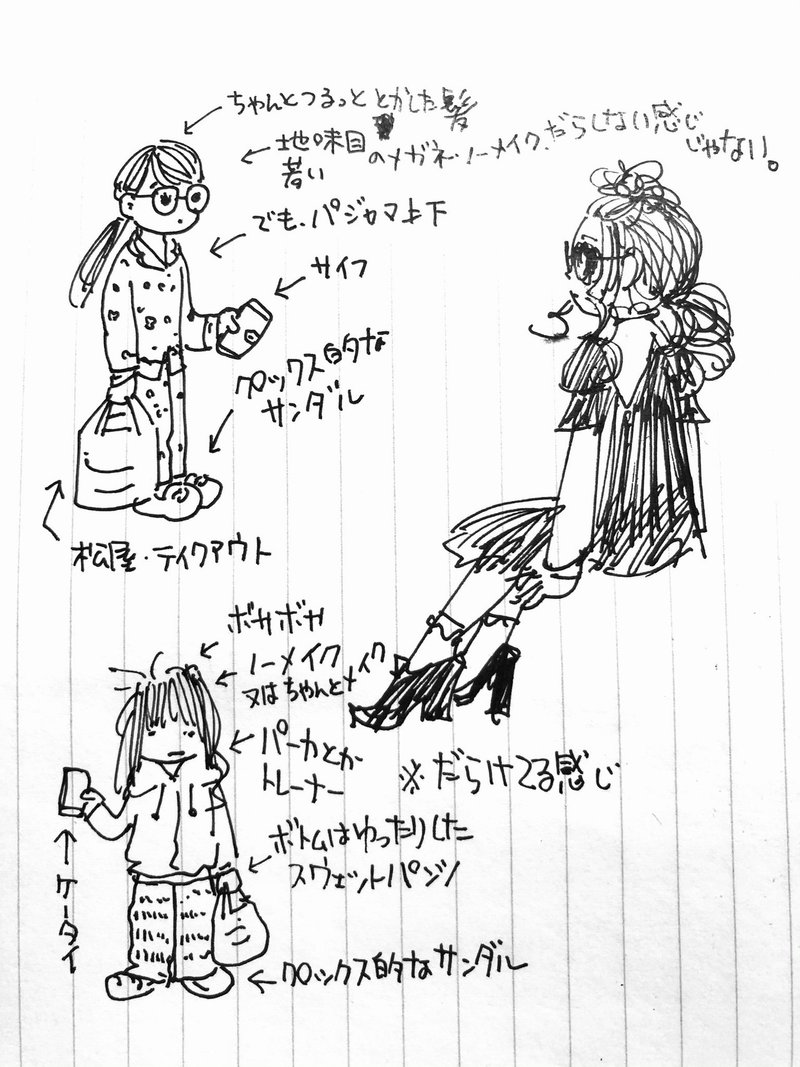 ちゃんとつるっととかした髪
地味目のメガネ・ノーメイク、だらしない感じ
じゃない。
若い
でも、パジャマ上下
サイフ
クロックス的な
サンダル
松屋・テイクアウト
ボサボサ
ノーメイク
又はちゃんとメイク
パーカとか
トレーナー
※だらけてる感じ
ボトムはゆったりした
スウェットパンツ
ケータイ
クロックス的なサンダル